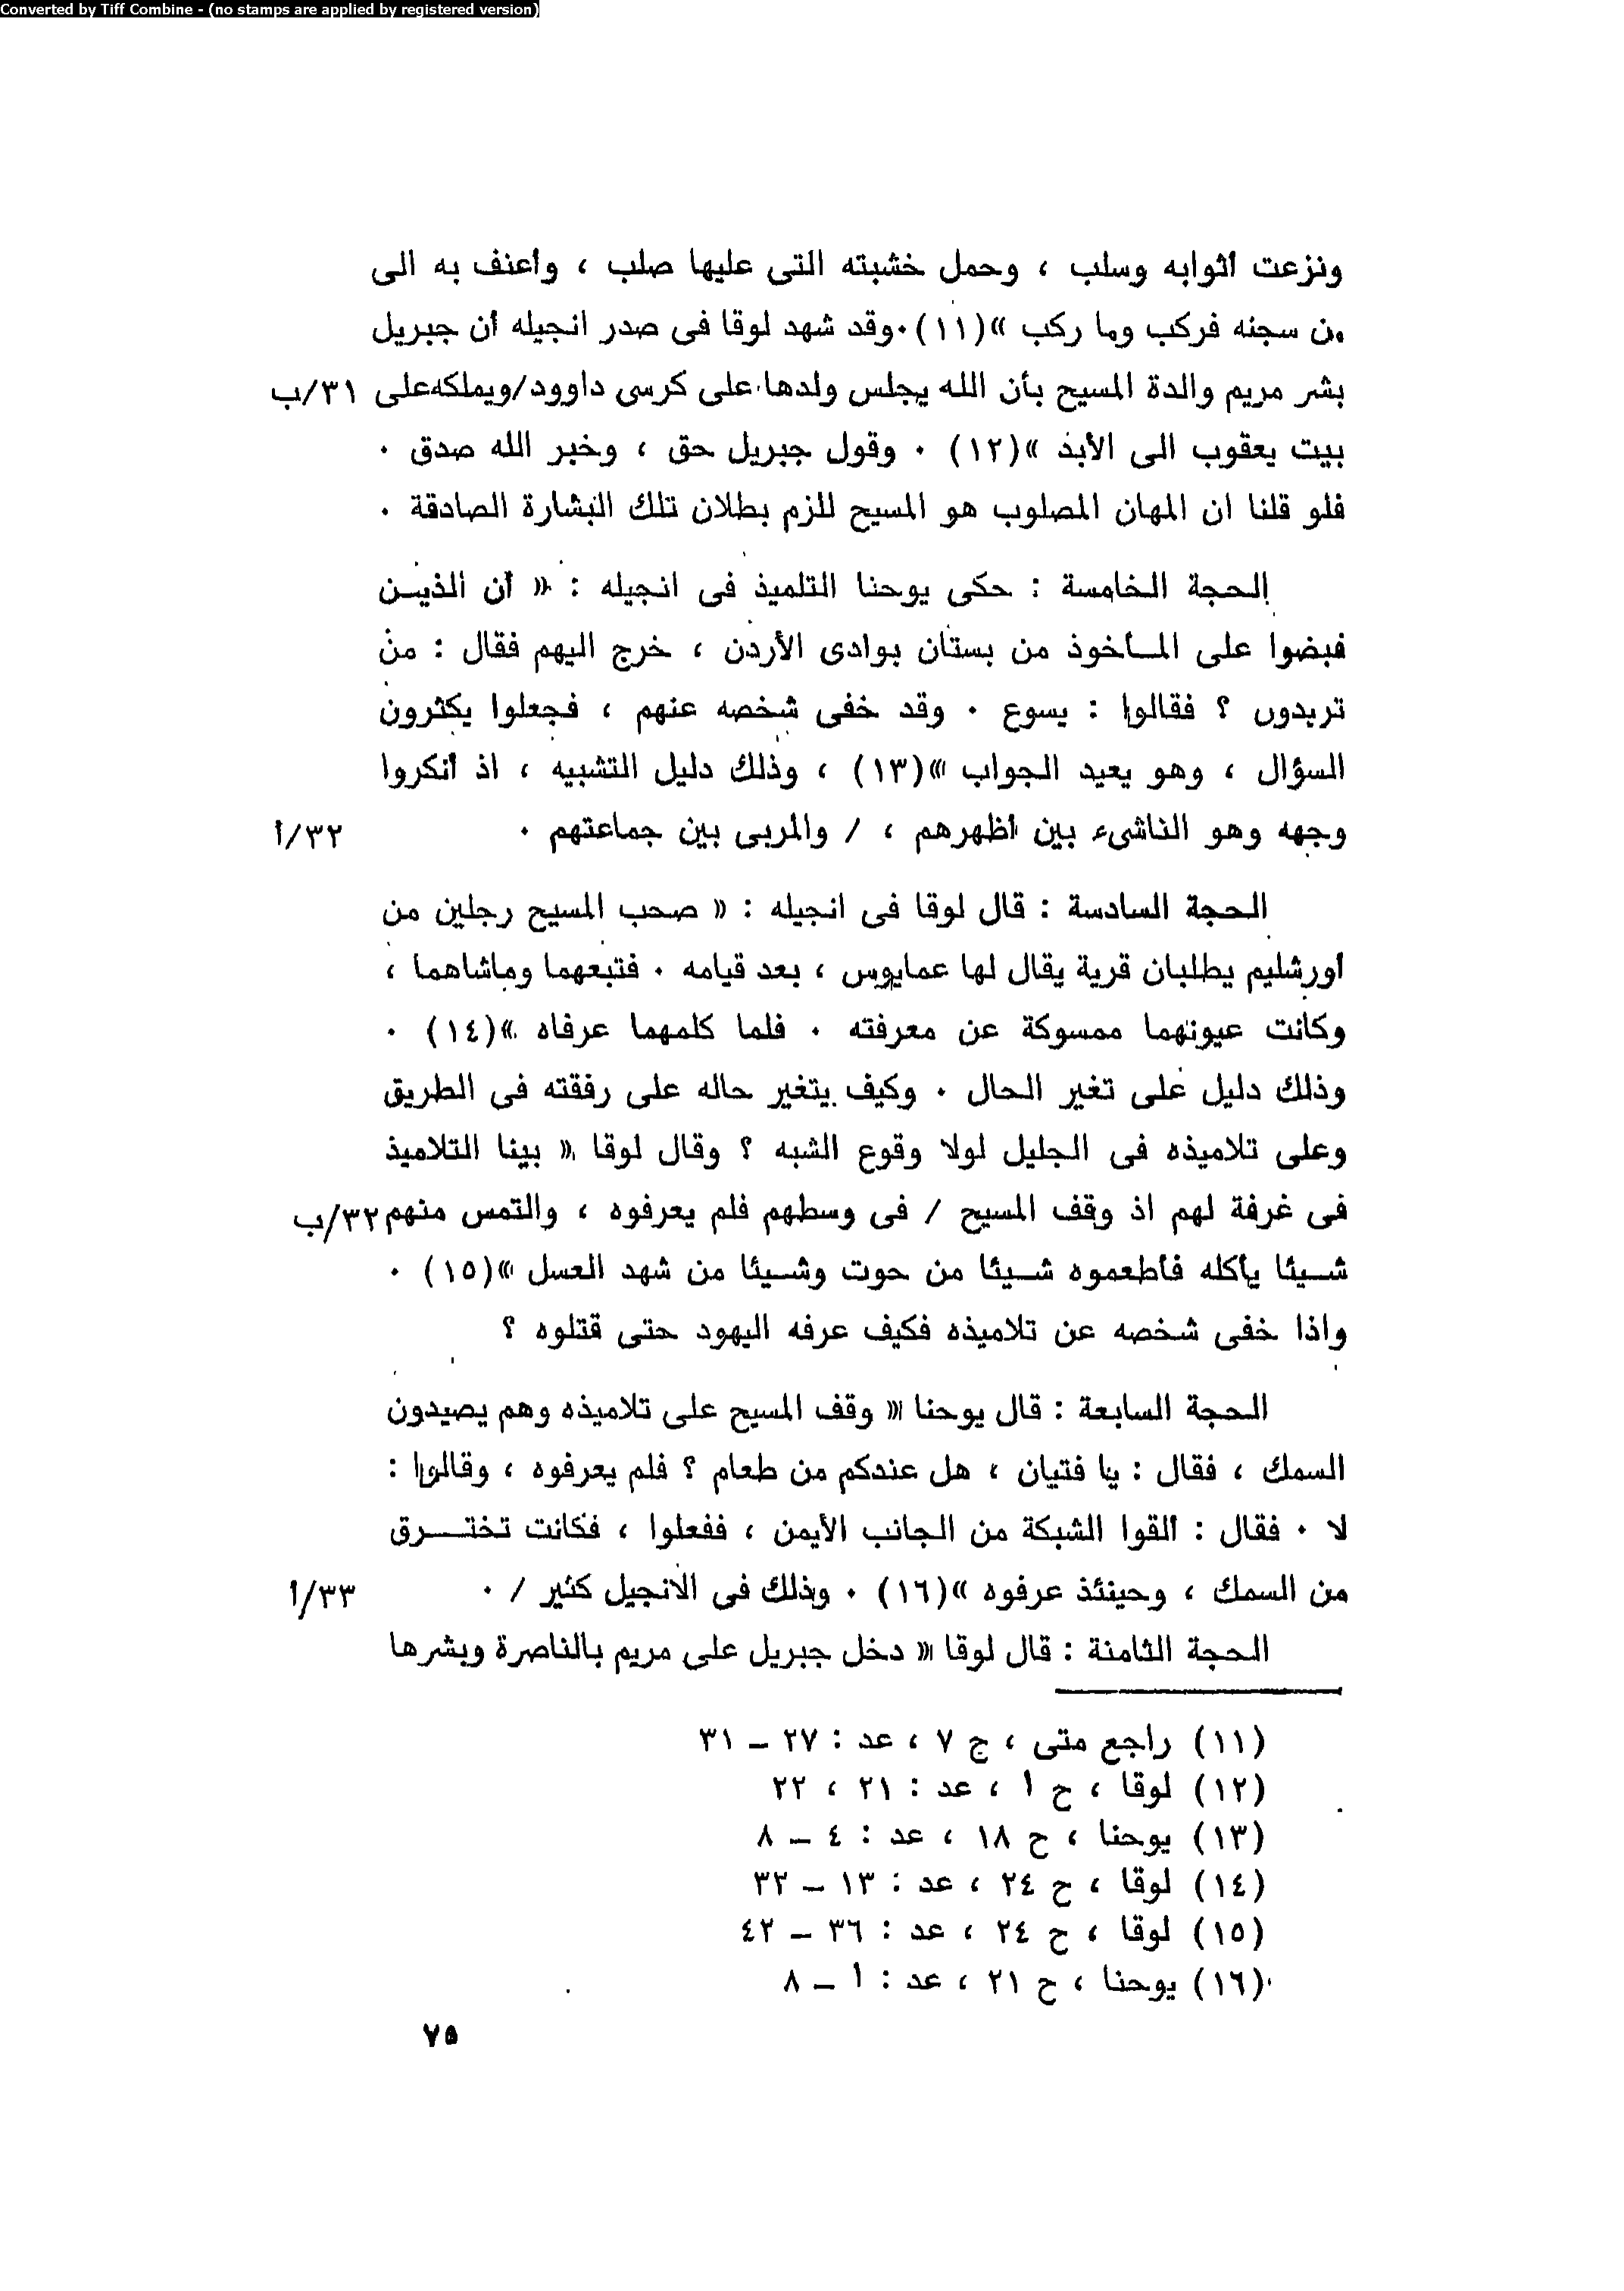 Converted by Tiff Combine - (no stamps are applied by registered version)
ونزعت أثوابه وسلب ، وحمل خشبته التى عليها صلب ، وأعنف به الى
من سجنه فركب وما ركب »(١١)٠وقد شهد لوقا فى صدر انجيله أن جبريل
بشر مريم والدة المسيح بأن الله يجلس ولدها على كرسى داوود/ويملكه على ٣١/ب
بيت يعقوب الى الأبد »(١٢) ٠ وقول جبريل حق ، وخبر الله صدق ٠
فلو قلنا ان المهان المصلوب هو المسيح للزم بطلان تلك البشارة الصادقة ٠
الحجة الخامسة : حكى يوحنا التلميذ فى انجيله : « أن الذيـن
قبضوا على المـأخوذ من بستان بوادى الأردن ، خرج اليهم فقال : من
تريدون ؟ فقالوا : يسوع ٠ وقد خفى شخصه عنهم ، فجعلوا يكثرون
السؤال ، وهو يعيد الجواب »(١٣) ، وذلك دليل التشبيه ، اذ أنكروا
وجهه وهو الناشىء بين أظهرهم ، / والمربى بين جماعتهم ٠ ٣٢/أ
الحجة السادسة : قال لوقا فى انجيله : « صحب المسيح رجلين من
أورشليم يطلبان قرية يقال لها عمايوس ، بعد قيامه ٠ فتبعهما وماشاهما ،
وكانت عيونهما ممسوكة عن معرفته ٠ فلما كلمهما عرفاه »(١٤) ٠
وذلك دليل على تغير الحال ٠ وكيف يتغير حاله على رفقته فى الطريق
وعلى تلاميذه فى الجليل لولا وقوع الشبه ؟ وقال لوقا « بينا التلاميذ
فى غرفة لهم اذ وقف المسيح / فى وسطهم فلم يعرفوه ، والتمس منهم ٣٢/ب
شـيئا يأكله فأطعموه شـيئا من حوت وشـيئا من شهد العسل »(١٥) ٠
واذا خفى شخصه عن تلاميذه فكيف عرفه اليهود حتى قتلوه ؟
الحجة السابعة : قال يوحنا « وقف المسيح على تلاميذه وهم يصيدون
السمك ، فقال : يا فتيان ، هل عندكم من طعام ؟ فلم يعرفوه ، وقالوا :
لا ٠ فقال : ألقوا الشبكة من الجانب الأيمن ، ففعلوا ، فكانت تختـــرق
من السمك ، وحينئذ عرفوه »(١٦) ٠ وذلك فى الانجيل كثير / ٠ ٣٣/أ
الحجة الثامنة : قال لوقا « دخل جبريل على مريم بالناصرة وبشرها
(١١) راجع متى ، ج ٧ ، عد : ٢٧ – ٣١
(١٢) لوقا ، ح ١ ، عد : ٢١ ، ٢٢
(١٣) يوحنا ، ح ١٨ ، عد : ٤ – ٨
(١٤) لوقا ، ح ٢٤ ، عد : ١٣ – ٣٢
(١٥) لوقا ، ح ٢٤ ، عد : ٣٦ – ٤٢
(١٦) يوحنا ، ح ٢١ ، عد : ١ – ٨
٧٥